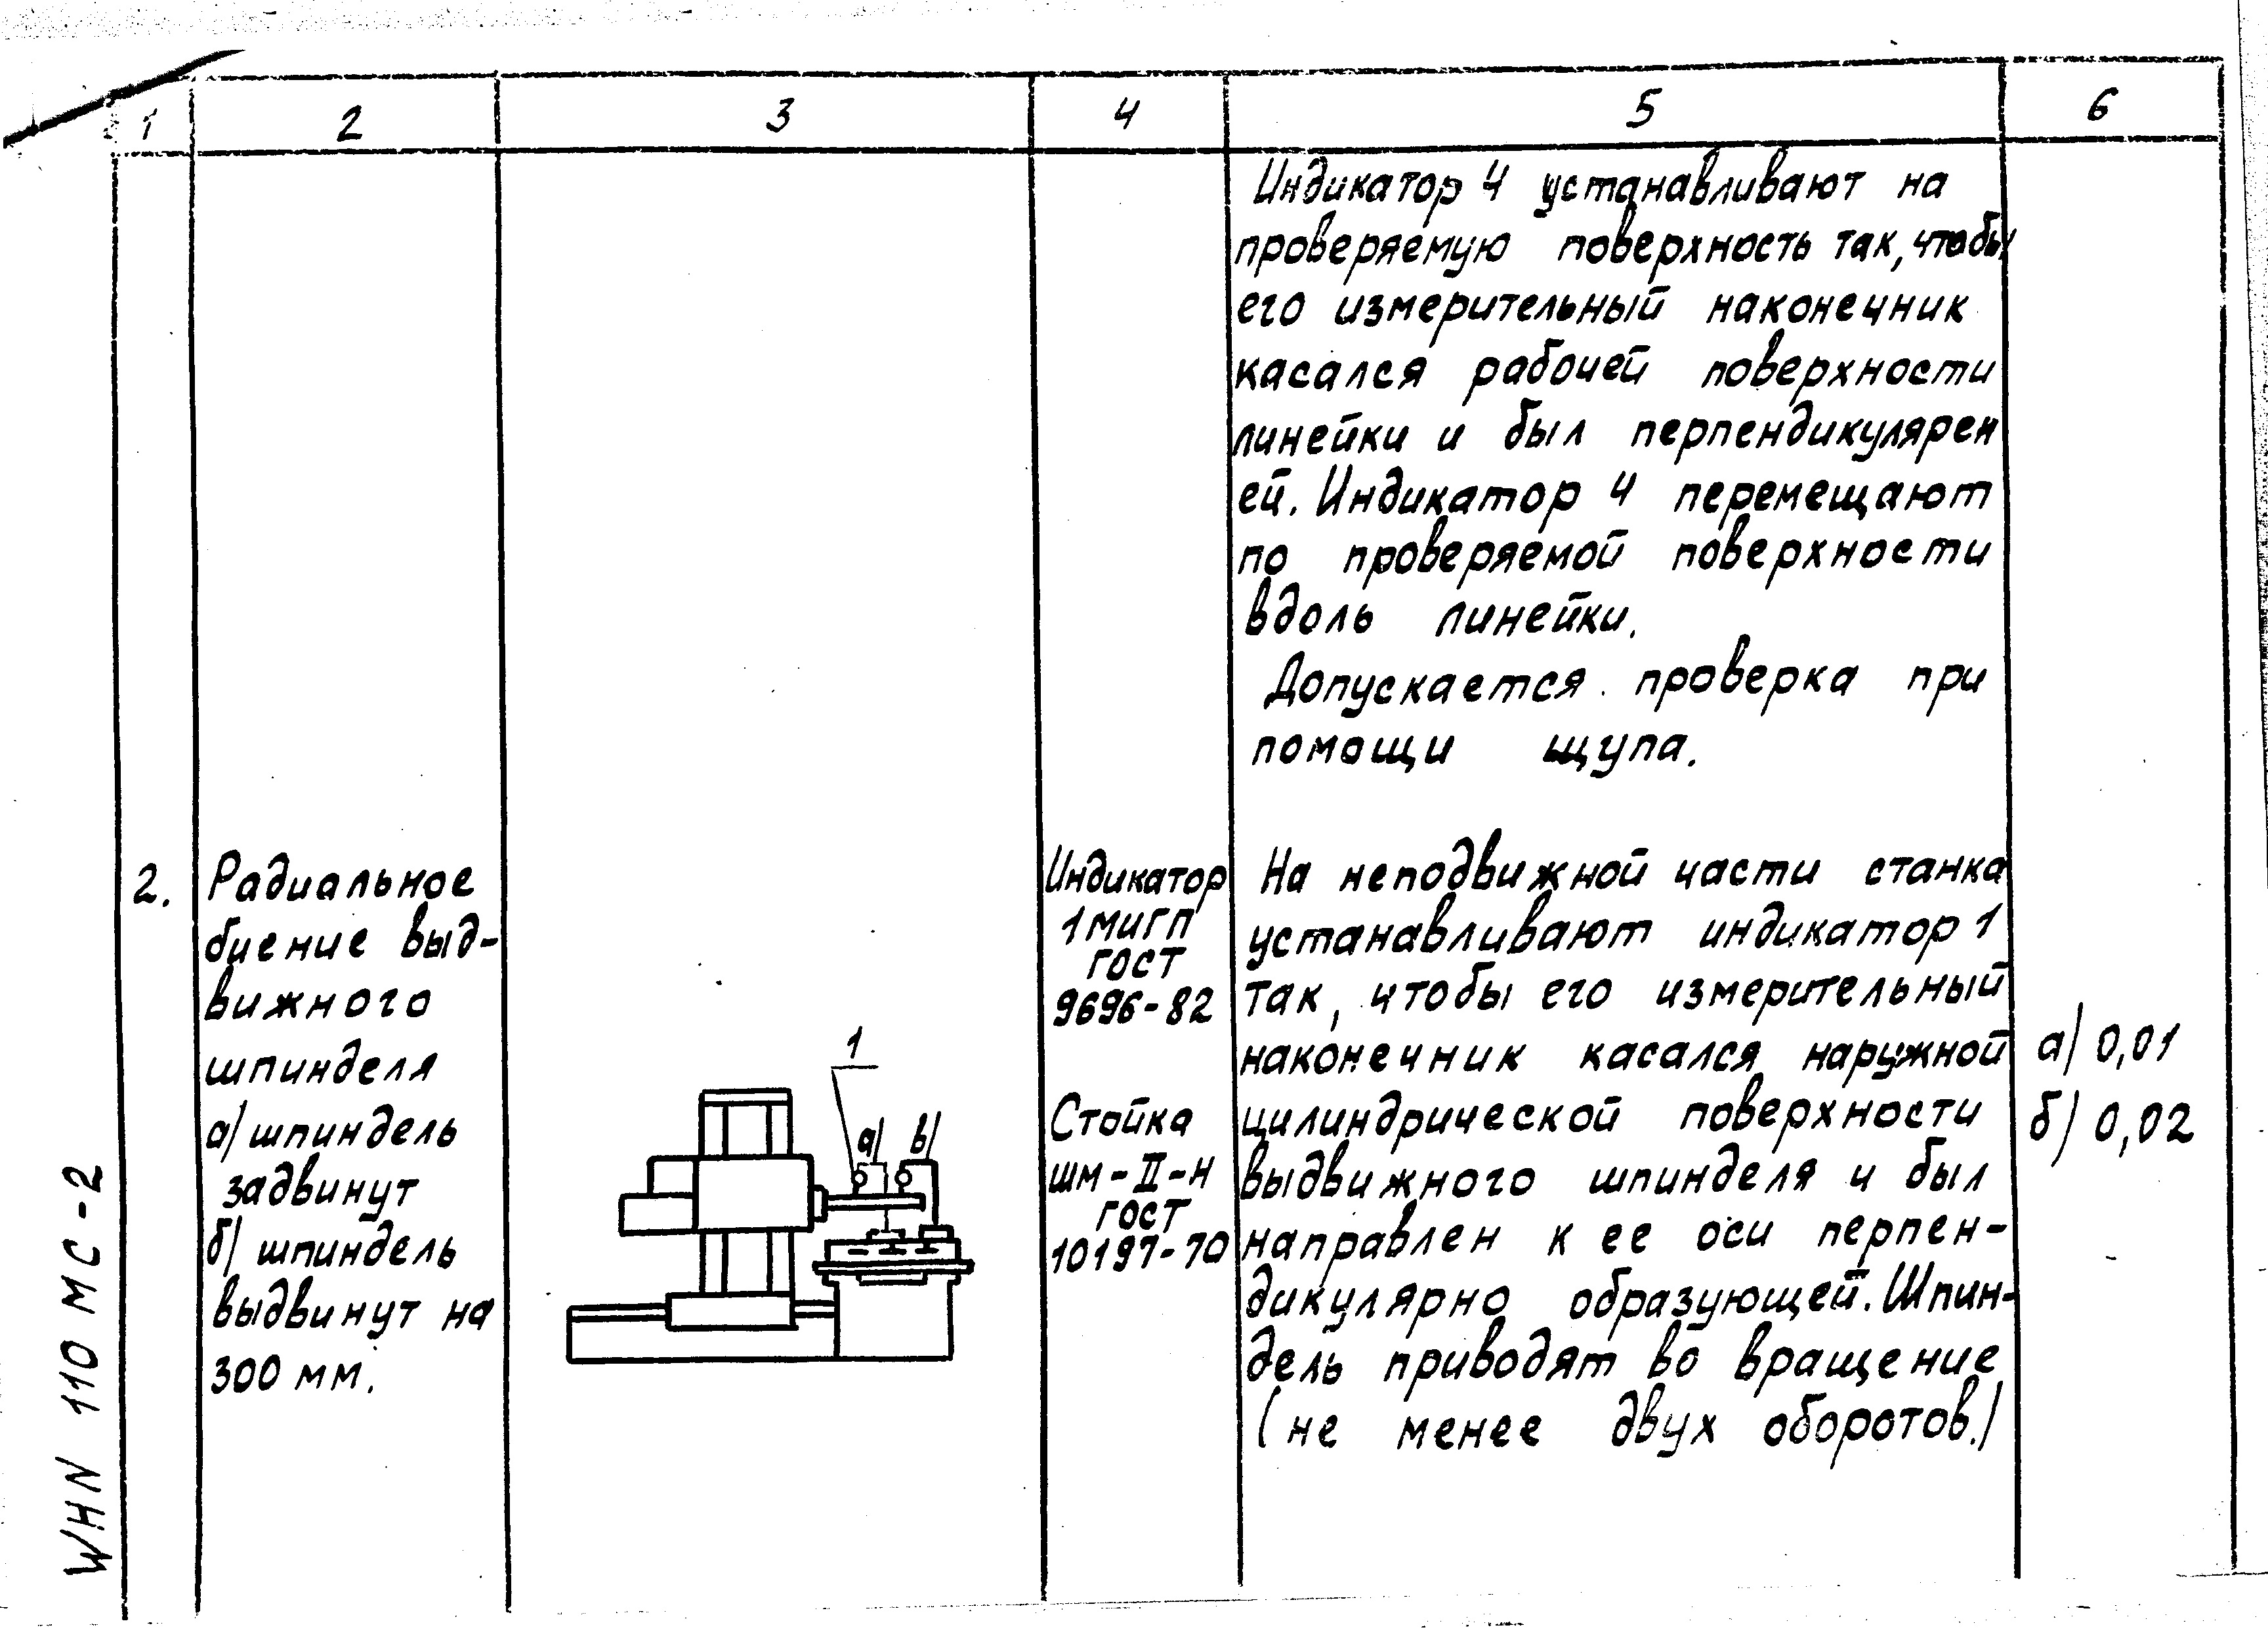 1 2 3 4 5 6
Индикатор 4 устанавливают на
проверяемую поверхность так, чтобы
его измерительный наконечник
касался рабочей поверхности
линейки и был перпендикулярен
ей. Индикатор 4 перемещают
по проверяемой поверхности
вдоль линейки.
Допускается проверка при
помощи щупа.
2.
Радиальное
биение выд-
вижного
шпинделя
а) шпиндель
задвинут
б) шпиндель
выдвинут на
300 мм.
1
а) в)
Индикатор
1МИГП
ГОСТ
9696-82
Стойка
ШМ-II-Н
ГОСТ
10197-70
На неподвижной части станка
устанавливают индикатор 1
так, чтобы его измерительный
наконечник касался наружной
цилиндрической поверхности
выдвижного шпинделя и был
направлен к ее оси перпен-
дикулярно образующей. Шпин-
дель приводят во вращение
(не менее двух оборотов.)
а) 0,01
б) 0,02
WHN 110 MC-2